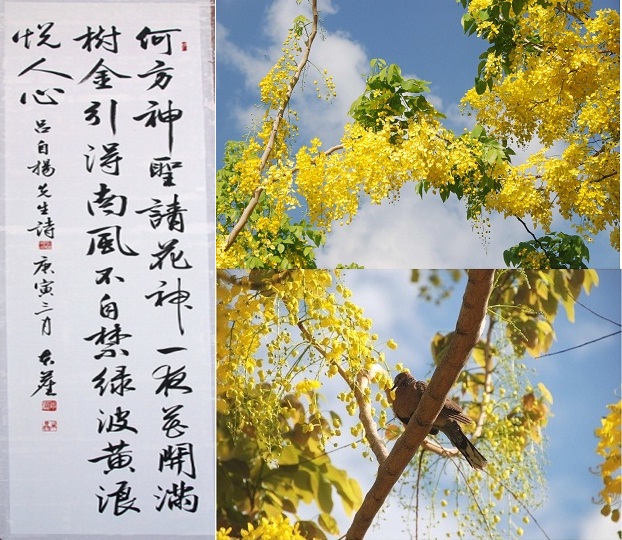 何方神聖請花神一夜花開滿
樹金引得南風不自禁綠波黃浪
悅人心
呂自揚先生詩
庚寅三月